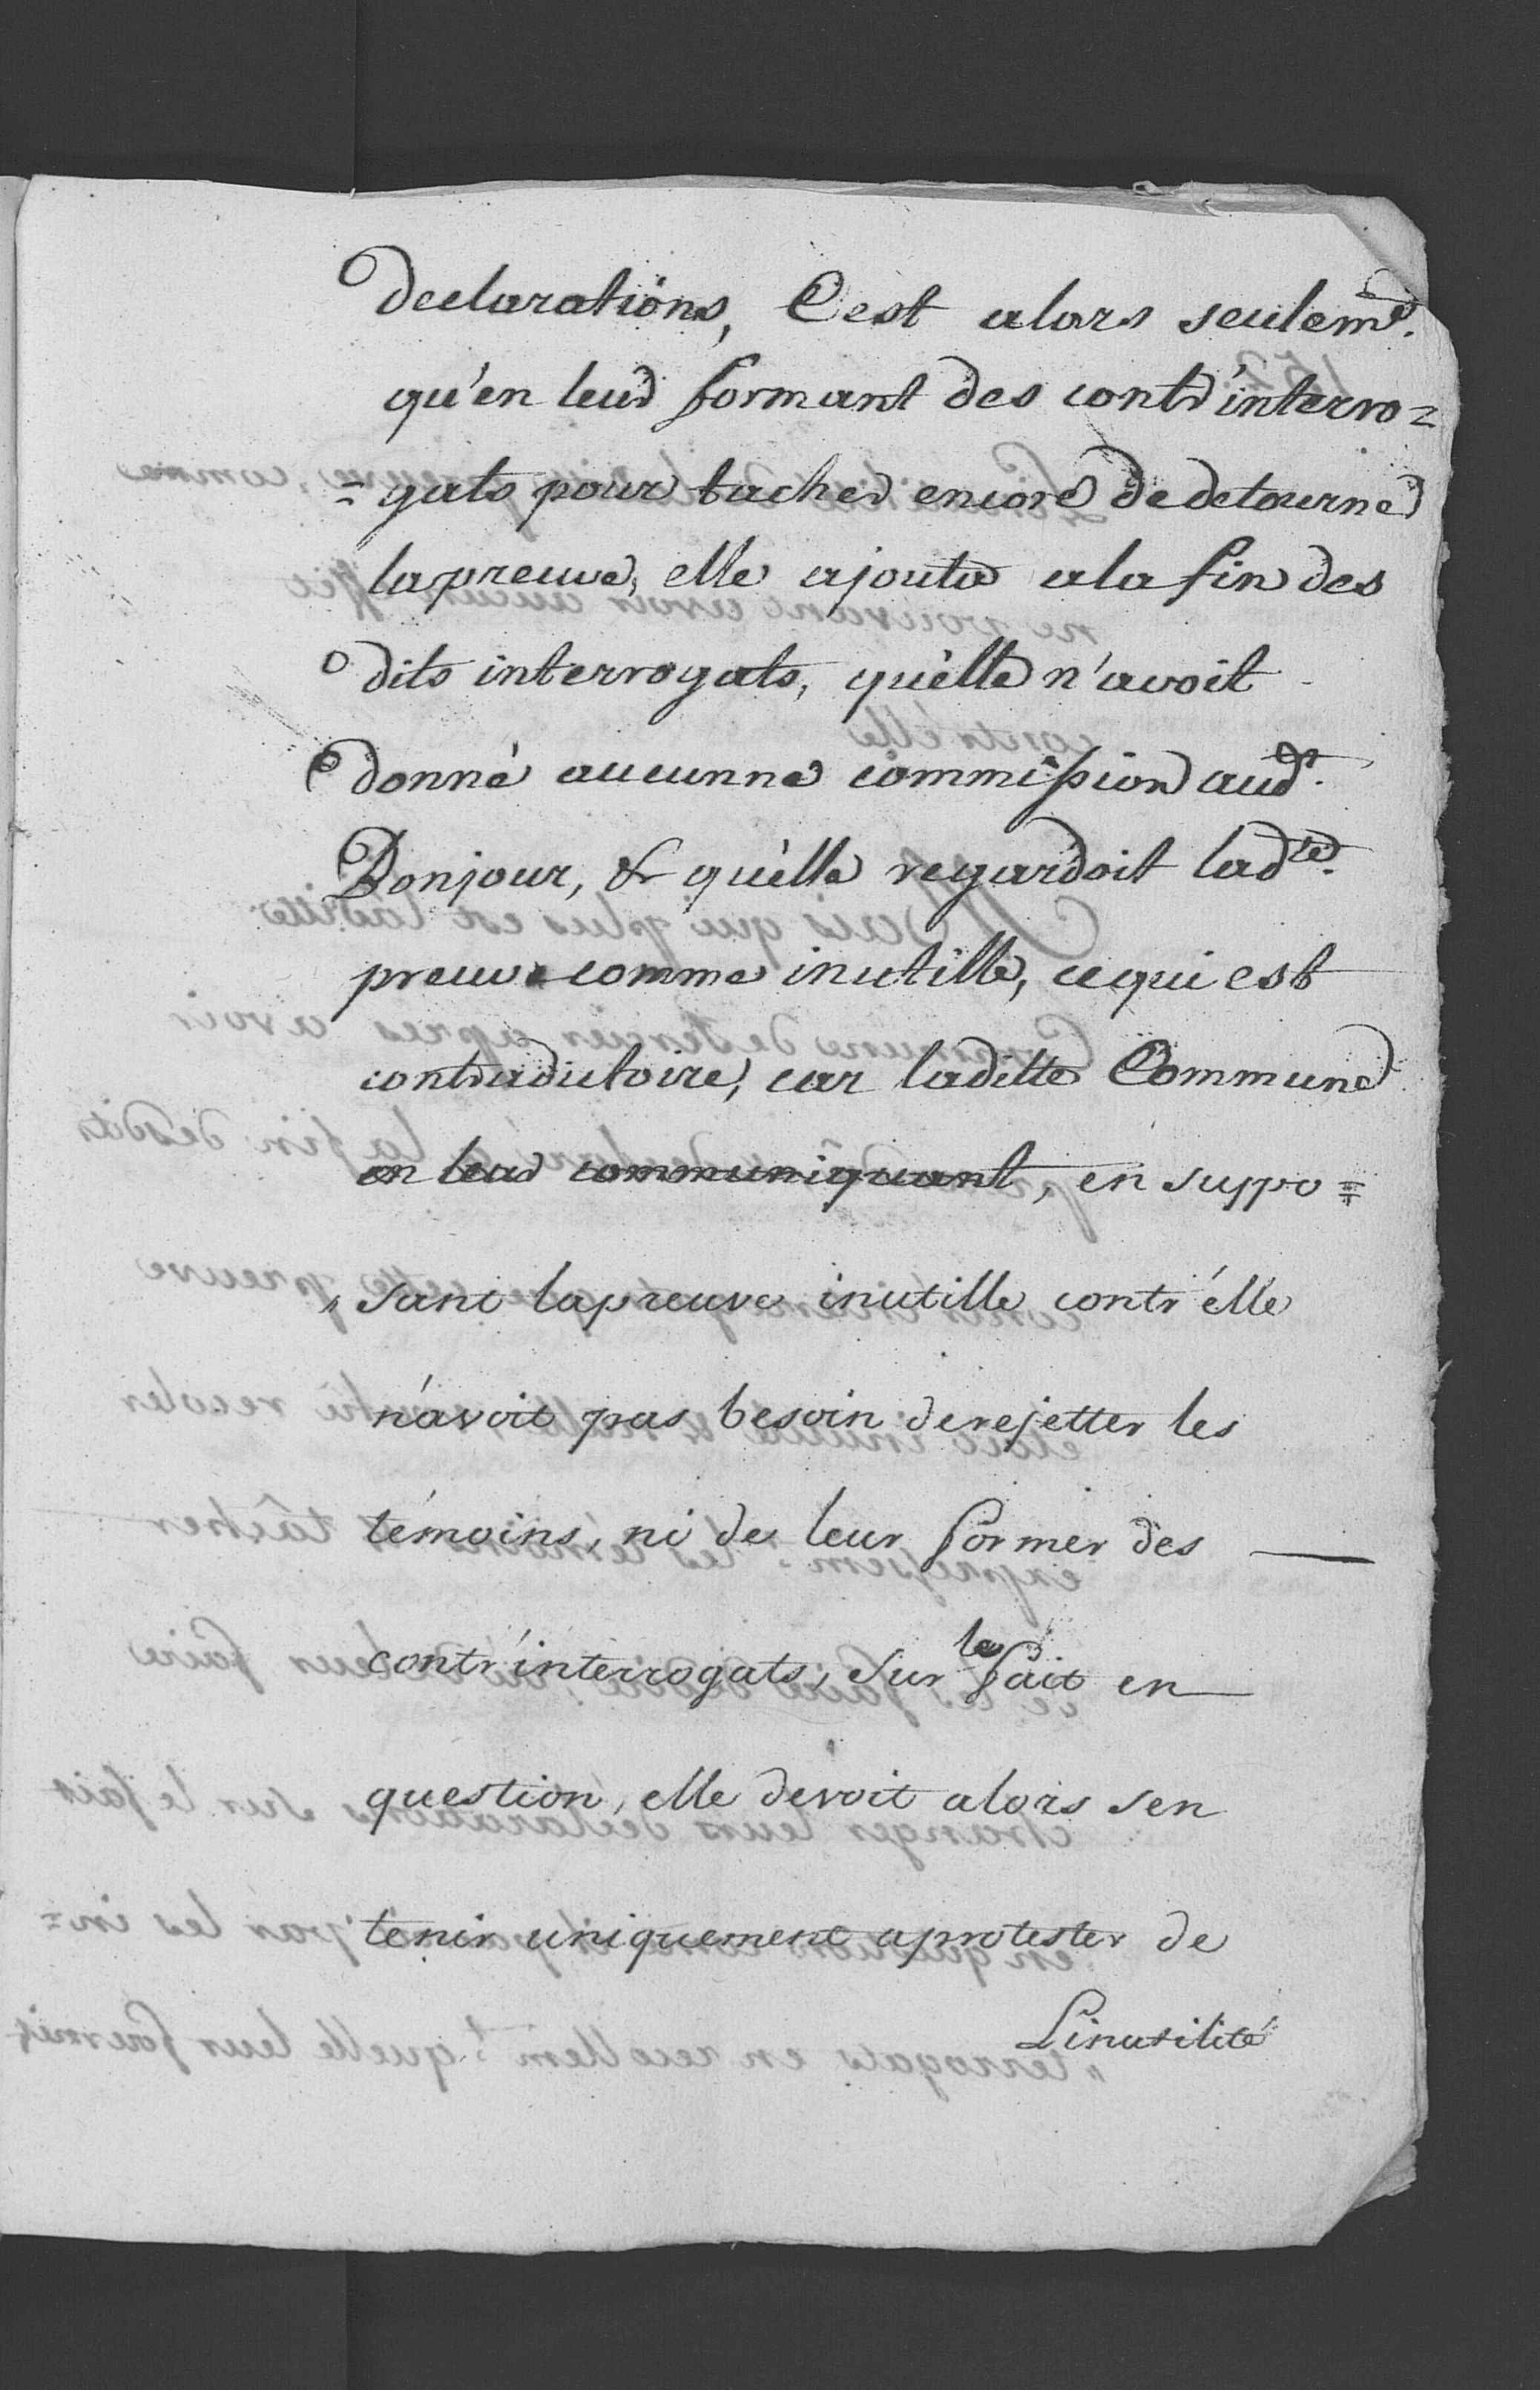 declarations, C'est alors seulemt.
qu'en leur formant des contr'interro=
=gats pour tacher encore de detourner
la preuve, elle ajouta a la fin des
dits interrogats, qu'elle n'avoit
donné aucunne commission audt.
Bonjour, & qu'elle regardoit ladte.
preuve comme inutille, ce qui est
contradictoire, car laditte Commune
en leur communiquant, en suppo=
"sant la preuve inutille contr'elle
n'avoit pas besoin de rejetter les
témoins, ni de leur former des
contr'interrogats, sur le fait en
question, elle devoit alors sen
tenir uniquement a protester de
Linutilité